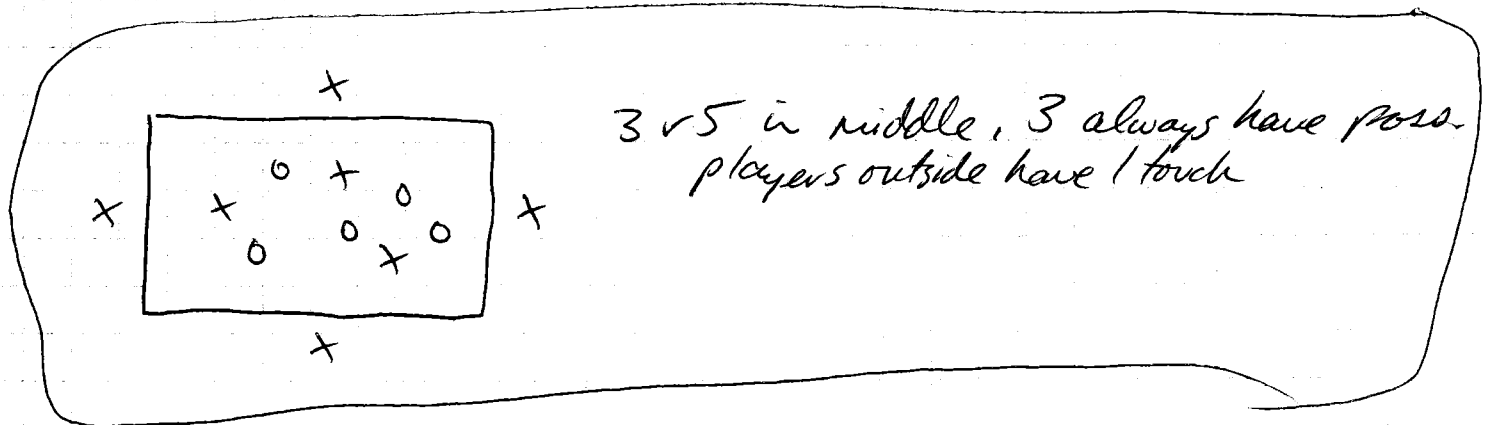 3 v 5 in middle, 3 always have poss.
players outside have 1 touch